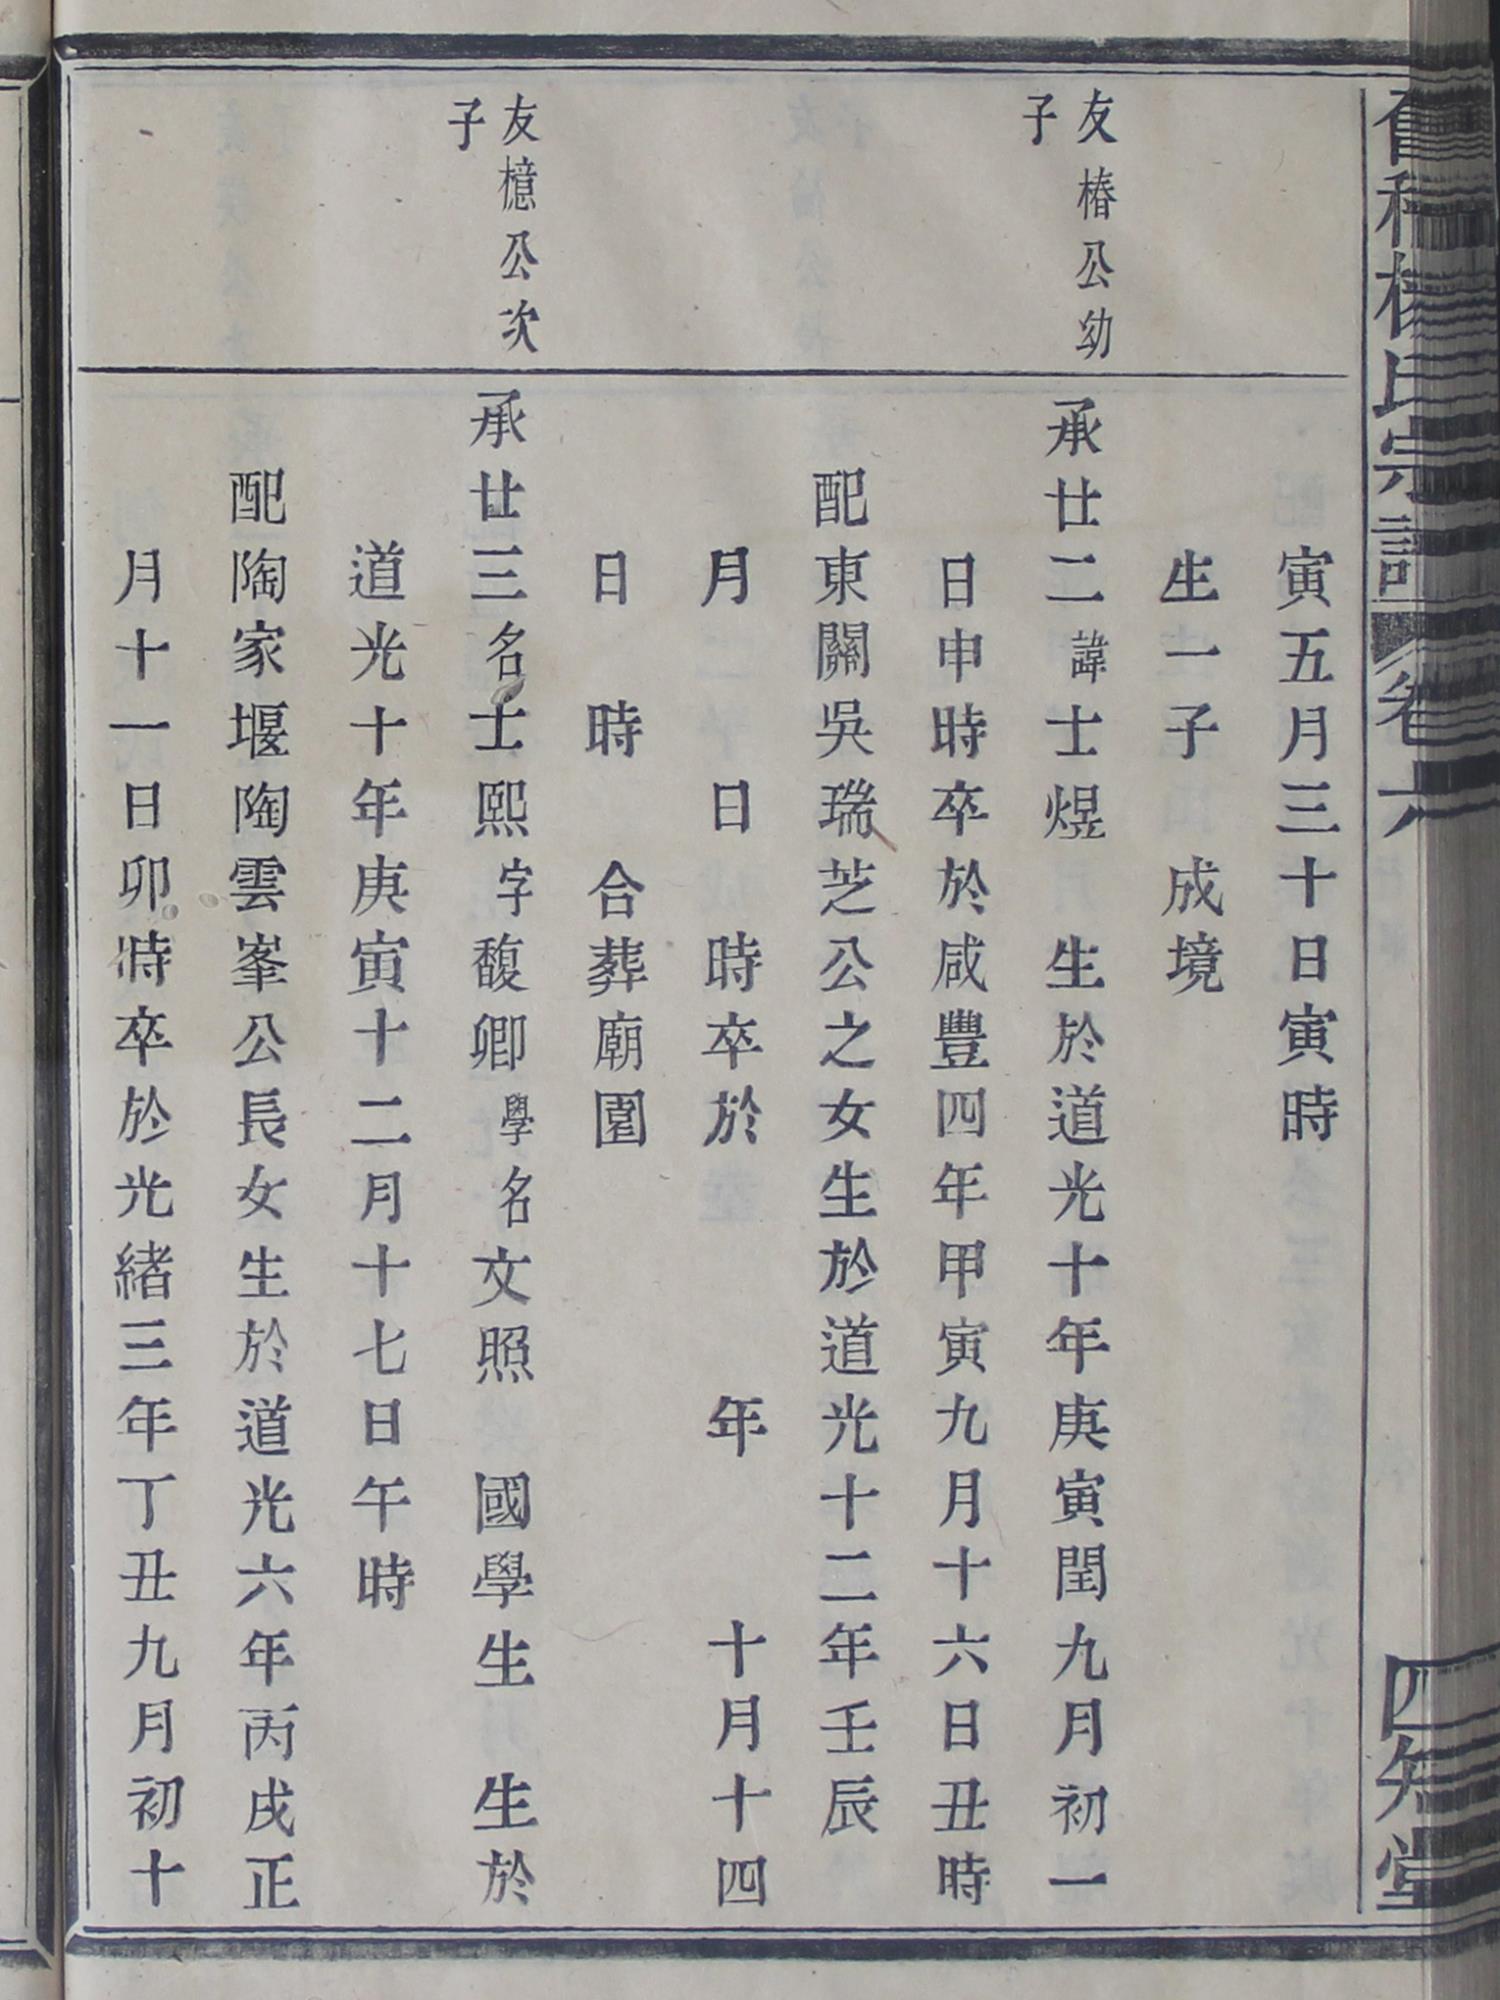 楊氏宗譜 卷六 四知堂
寅五月三十日寅時
生一子 成境
友椿公幼子
承廿二諱士煜 生於道光十年庚寅閏九月初一
日申時卒於咸豐四年甲寅九月十六日丑時
配東關吳瑞芝公之女生於道光十二年壬辰
月 日 時卒於 年 十月十四
日 時 合葬廟園
友檍公次子
承廿三名士熙字馥卿學名文照 國學生 生於
道光十年庚寅十二月十七日午時
配陶家堰陶雲峯公長女生於道光六年丙戌正
月十一日卯時卒於光緒三年丁丑九月初十